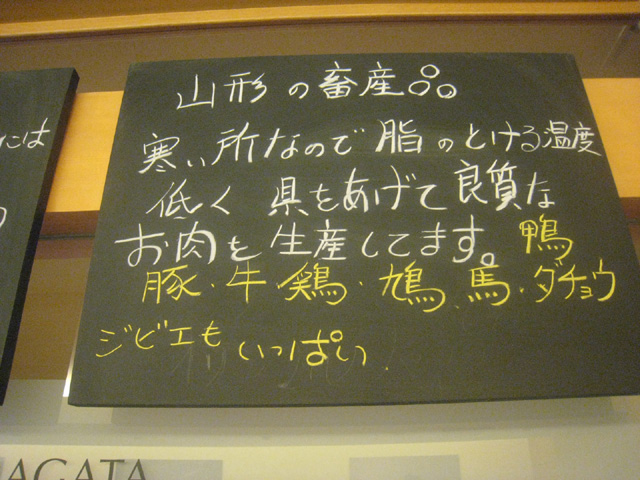 山形の畜産。。。
寒い所なので脂のとける温度
低く 県をあげて良質な
お肉を生産してます。鴨
豚・牛・鶏・鳩、馬・ダチョウ
ジビエもいっぱい
には
AGATA